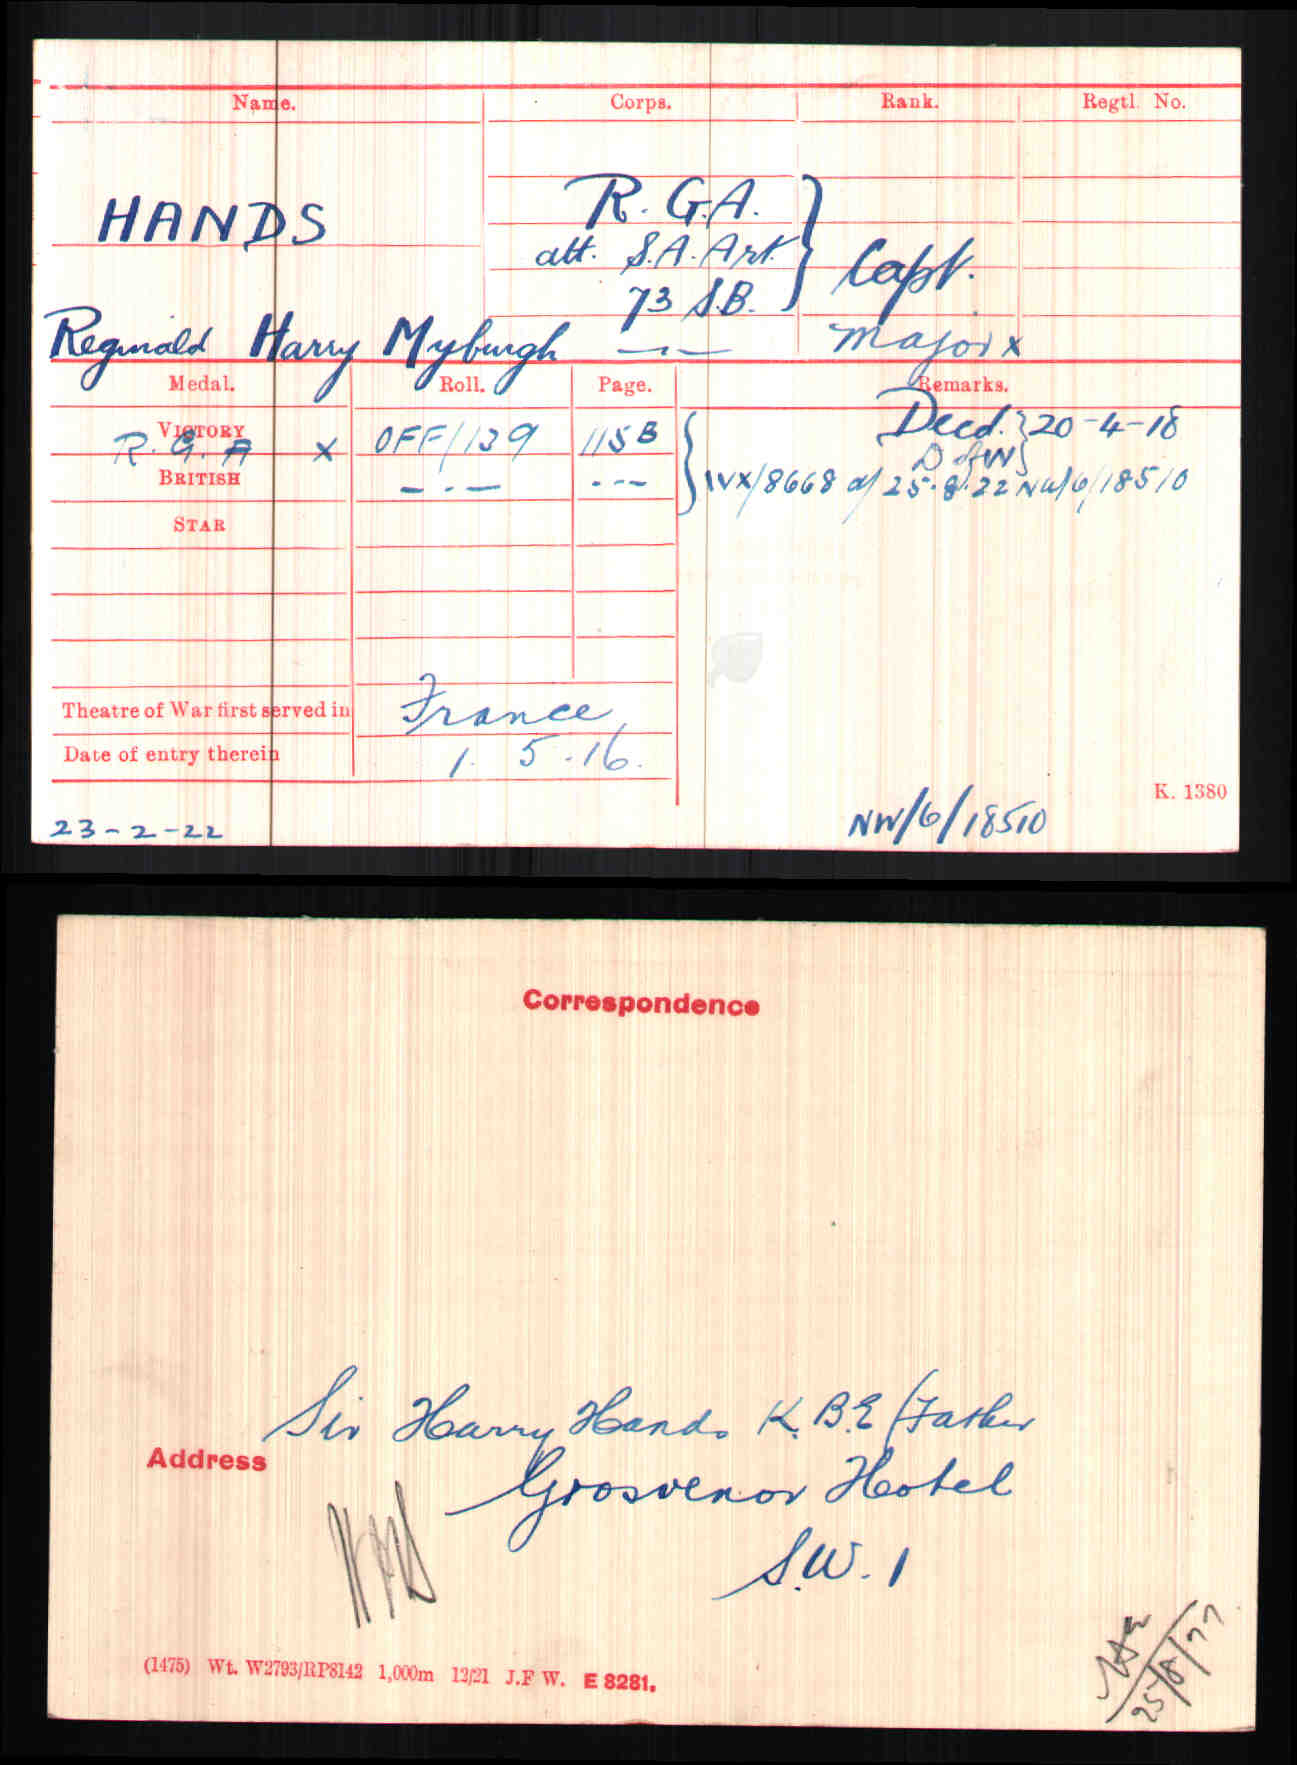 Name. Corps. Rank. Regtl. No.
HANDS
R.G.A.
att. S.A. Art.
73 S.B.
Capt.
Reginald Harry Myburgh —〃— Major x
Medal. Roll. Page. Remarks.
VICTORY OFF/139 115B Decd. 20-4-18
R.G.A x
D of W
BRITISH —·— -·- IVX/8668 d/ 25.8.22 NW/6/18510
STAR
Theatre of War first served in France
Date of entry therein 1.5.16.
K. 1380
23-2-22 NW/6/18510
Correspondence
Sir Harry Hands K.B.E (Father
Address
Grosvenor Hotel
S.W.1
(1475) Wt. W2793/RP8142 1,000m 12/21 J.F W. E 8281.